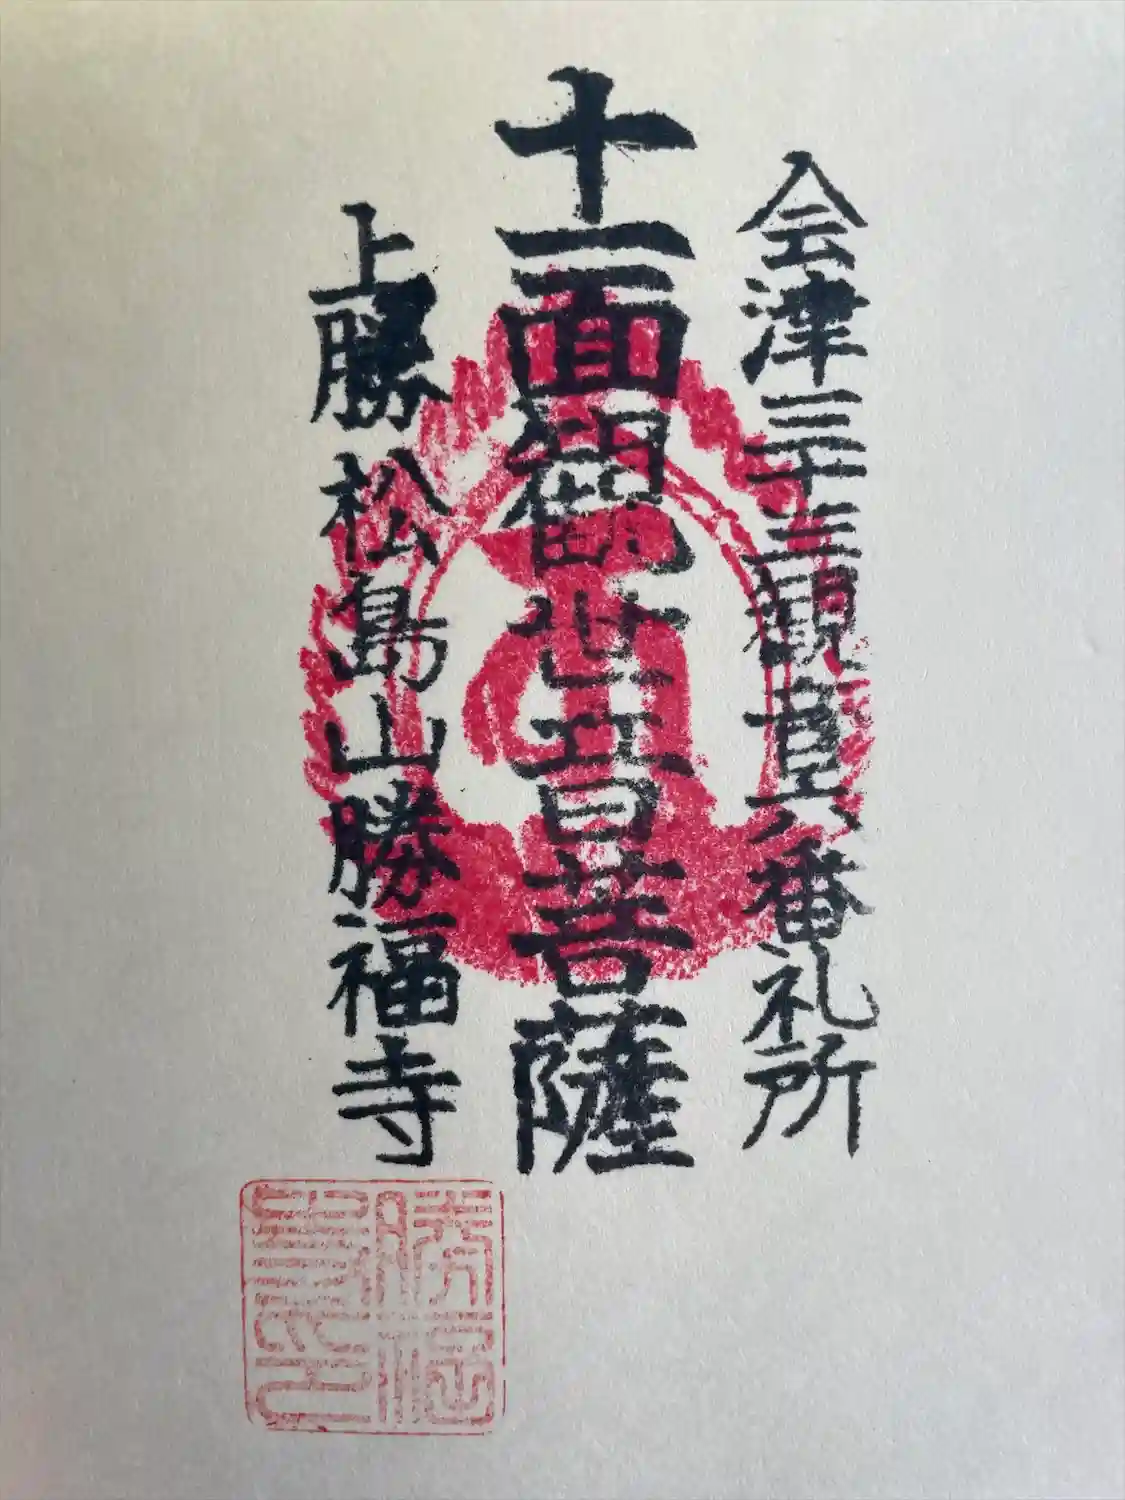 会津三十三観音六番礼所
十一面觀世音菩薩
上勝 松島山勝福寺